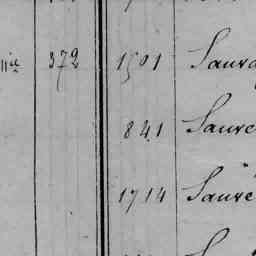 372 1501 Sauva
841 Sauve
1714 Sauve